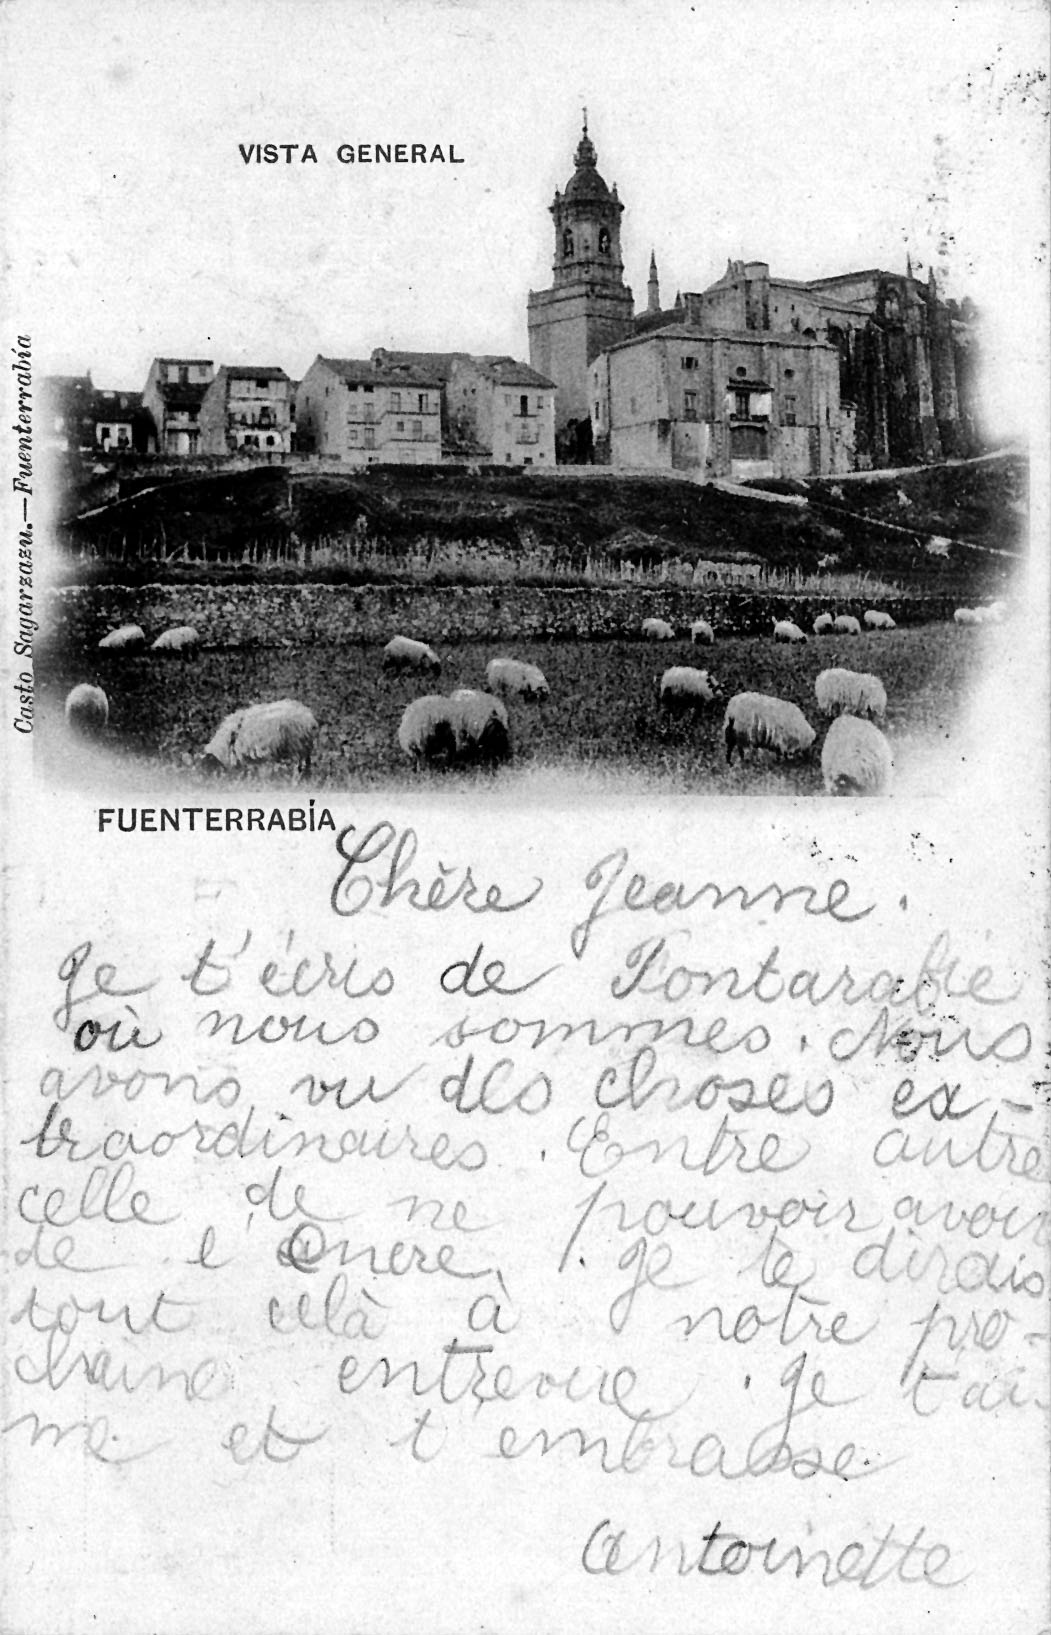 VISTA GENERAL
Casto Sagarzazu.—Fuenterrabía
FUENTERRABÍA
Chère Jeanne.
Je t'écris de Fontarabie
où nous sommes. Nous
avons vu des choses ex-
traordinaires. Entre autre
celle de ne pouvoir avoir
de l'encre. Je te dirais
tout celà à notre pro-
chaine entrevue. Je t'ai-
me et t'embrasse
Antoinette